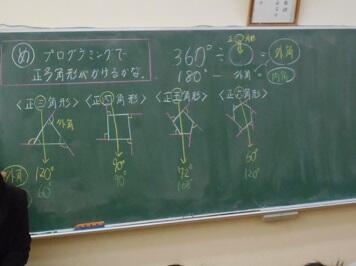 め プログラミングで
正多角形がかけるかな。
360° ÷ ◯ = 外角
180° - 外角 = 内角
〈正三角形〉 〈正四角形〉 〈正五角形〉 〈正六角形〉
外角
外角 120° 90° 72° 60°
60° 90° 108° 120°